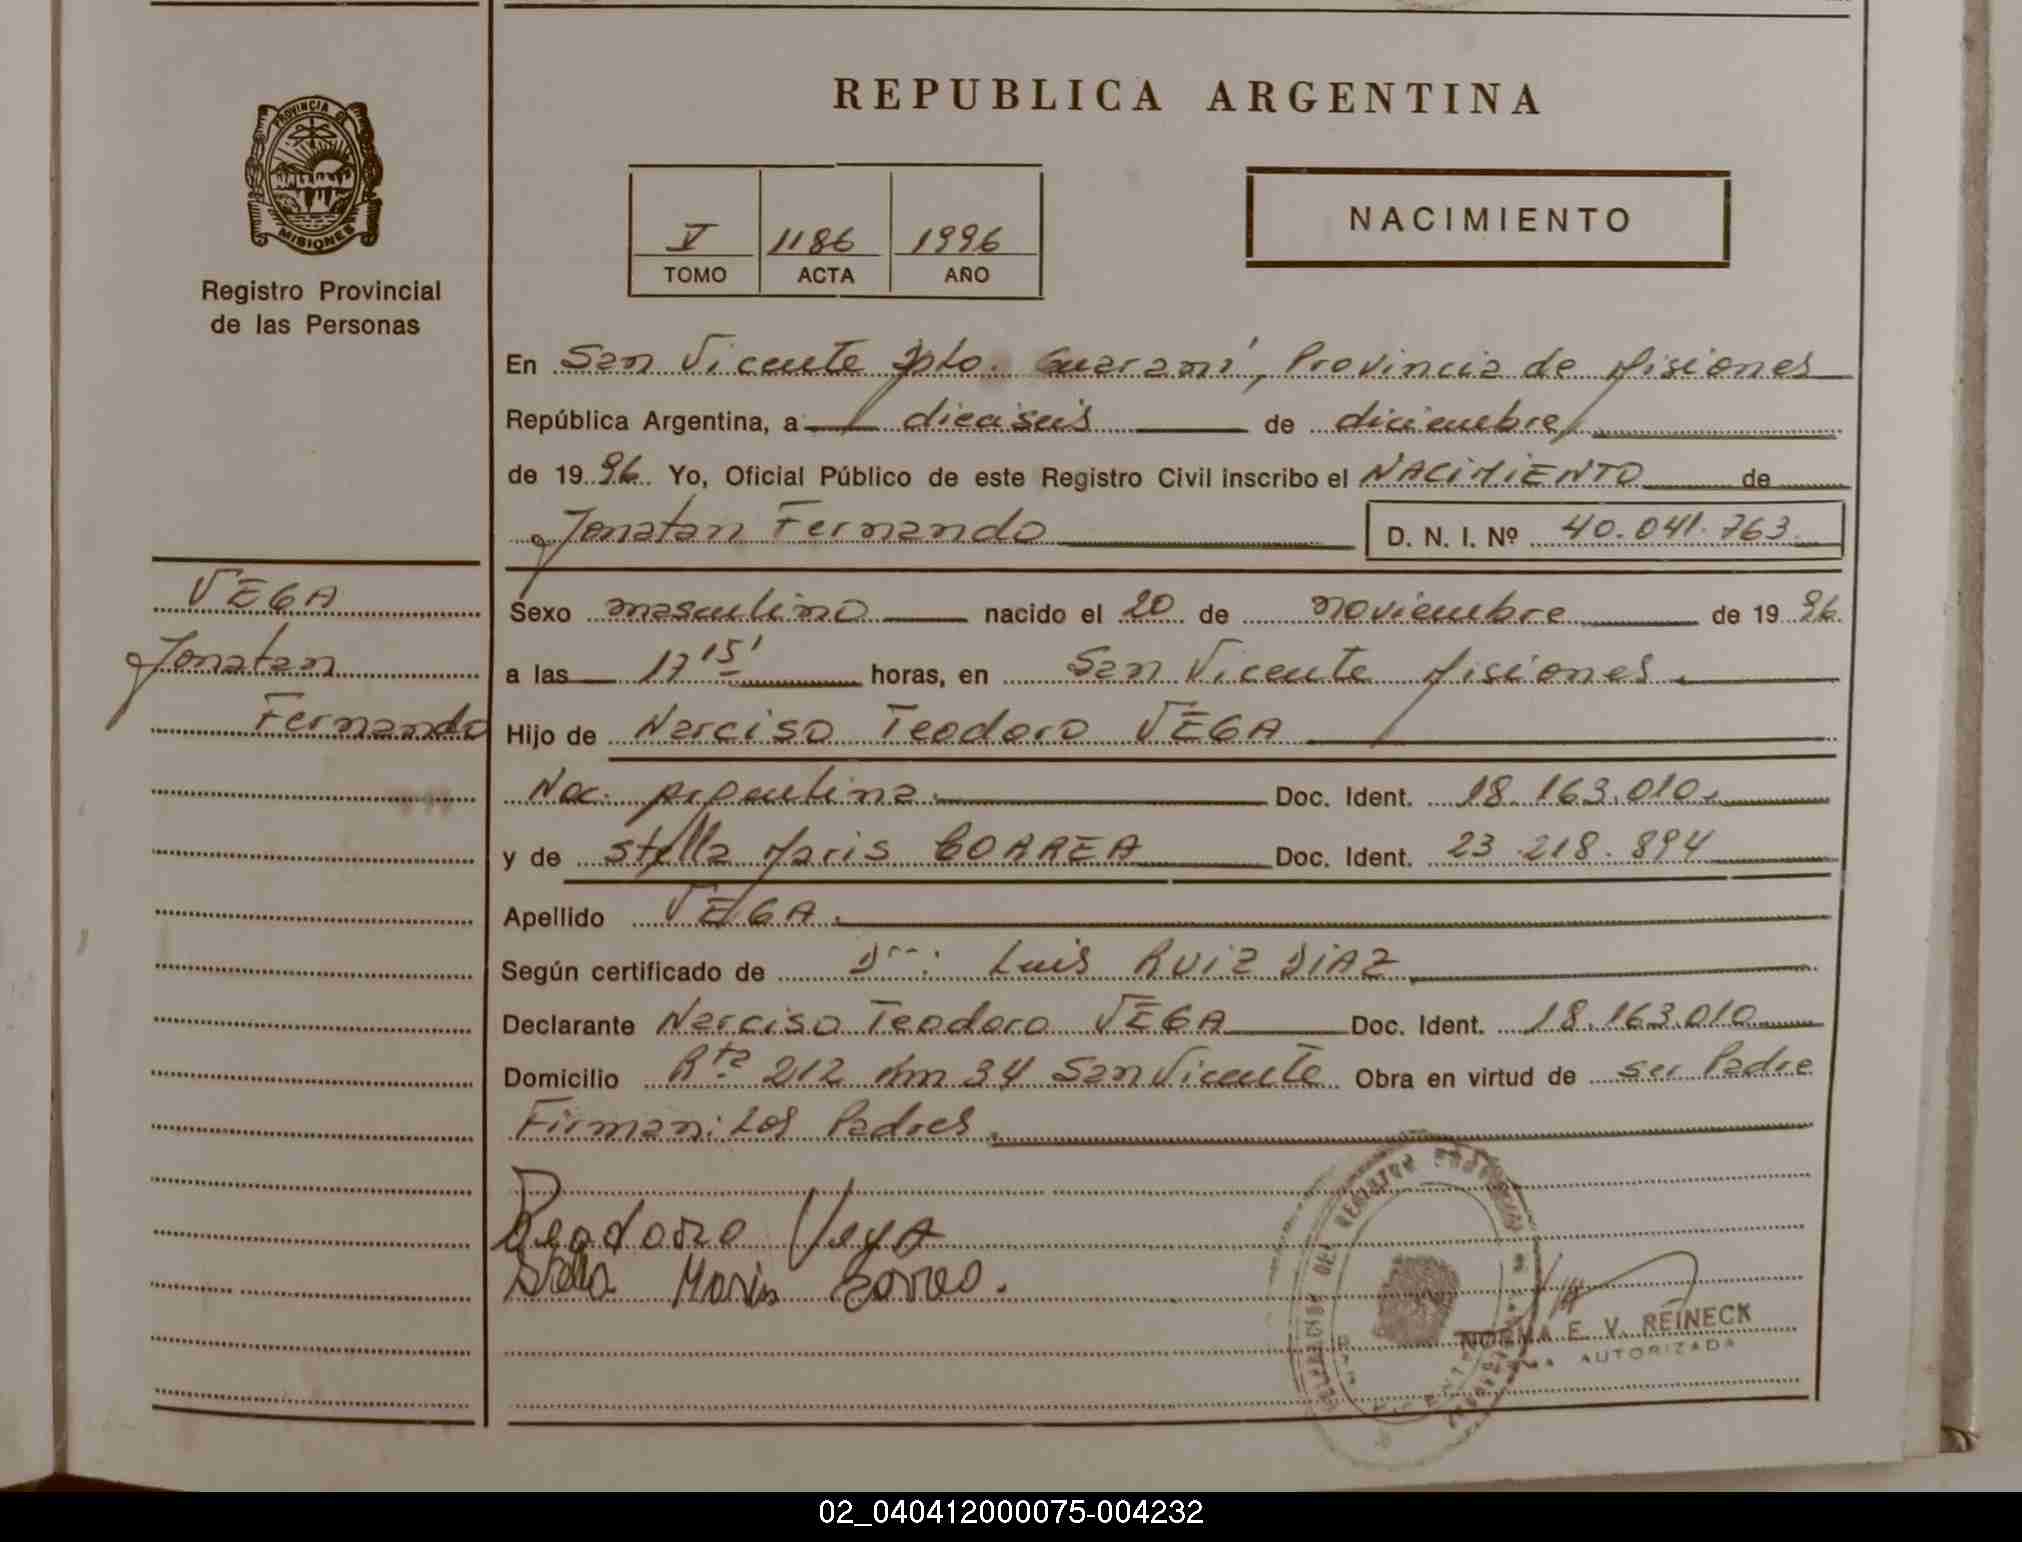 REPUBLICA ARGENTINA
PROVINCIA DE
MISIONES
Registro Provincial
de las Personas
V 1186 1996
TOMO ACTA AÑO
NACIMIENTO
En San Vicente Dpto. Guaraní, Provincia de Misiones
República Argentina, a dieciseis de diciembre
de 19 96 Yo, Oficial Público de este Registro Civil inscribo el NACIMIENTO de
Jonatan Fernando D. N. I. Nº 40.041.763
VEGA
Jonatan
Fernando
Sexo masculino nacido el 20 de noviembre de 19 96
a las 17 15' horas, en San Vicente Misiones
Hijo de Narciso Teodoro VEGA
Nac. argentina. Doc. Ident. 18.163.010.
y de Stella Maris CORREA Doc. Ident. 23.218.894
Apellido VEGA.
Según certificado de Luis RUIZ DIAZ
Declarante Narciso Teodoro VEGA Doc. Ident. 18.163.010
Domicilio Rta 212 Km 34 San Vicente Obra en virtud de su Padre
Firman: Los Padres.
Teodoro Vega
Stella Maris Correa.
NORMA E. V. REINECK
FIRMA AUTORIZADA
02_040412000075-004232